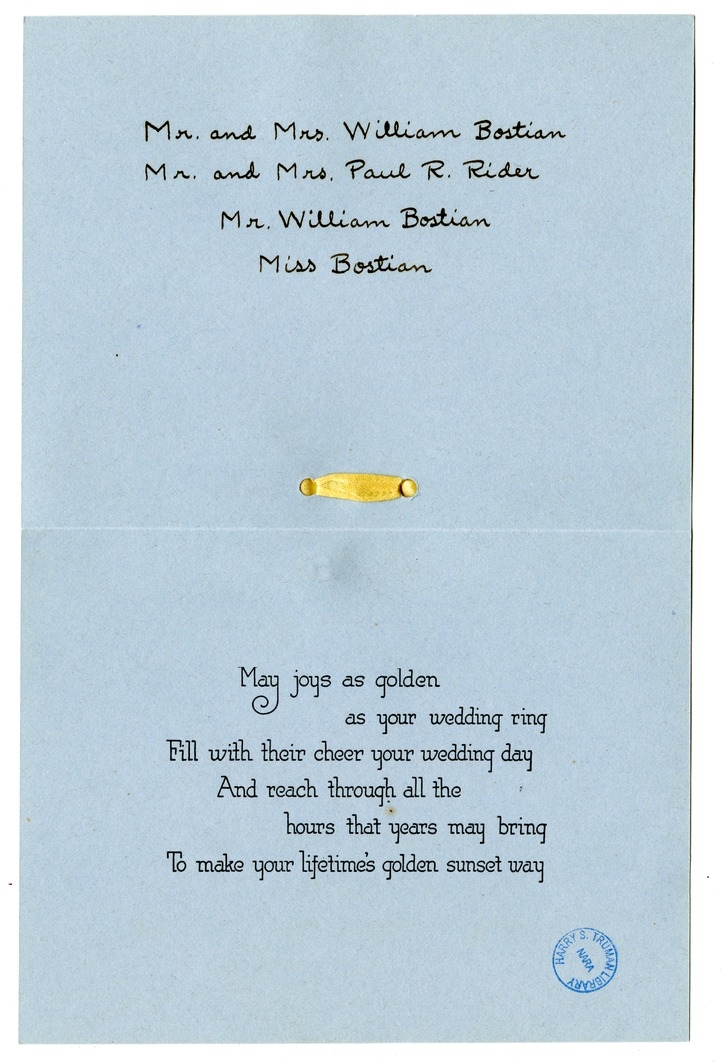 Mr. and Mrs. William Bostian
Mr. and Mrs. Paul R. Rider
Mr. William Bostian
Miss Bostian
May joys as golden
as your wedding ring
Fill with their cheer your wedding day
And reach through all the
hours that years may bring
To make your lifetime's golden sunset way
HARRY S. TRUMAN LIBRARY
NARA